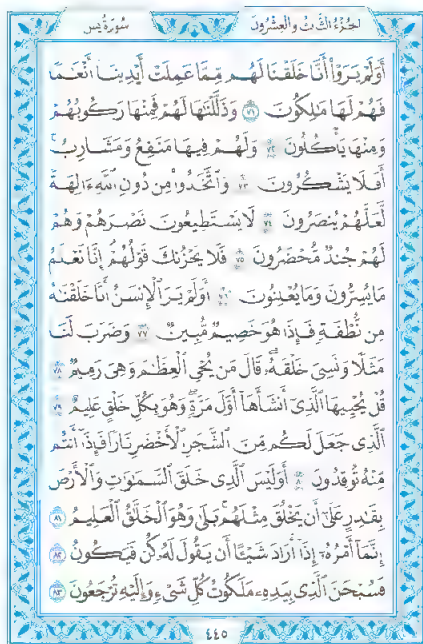 الجزء الثالث والعشرون
سورة يس
أَوَلَمْ يَرَوْا أَنَّا خَلَقْنَا لَهُم مِّمَّا عَمِلَتْ أَيْدِينَا أَنْعَٰمًا
فَهُمْ لَهَا مَٰلِكُونَ ٧١ وَذَلَّلْنَٰهَا لَهُمْ فَمِنْهَا رَكُوبُهُمْ
وَمِنْهَا يَأْكُلُونَ ٧٢ وَلَهُمْ فِيهَا مَنَٰفِعُ وَمَشَارِبُ
أَفَلَا يَشْكُرُونَ ٧٣ وَٱتَّخَذُوا۟ مِن دُونِ ٱللَّهِ ءَالِهَةً
لَّعَلَّهُمْ يُنصَرُونَ ٧٤ لَا يَسْتَطِيعُونَ نَصْرَهُمْ وَهُمْ
لَهُمْ جُندٌ مُّحْضَرُونَ ٧٥ فَلَا يَحْزُنكَ قَوْلُهُمْ إِنَّا نَعْلَمُ
مَا يُسِرُّونَ وَمَا يُعْلِنُونَ ٧٦ أَوَلَمْ يَرَ ٱلْإِنسَٰنُ أَنَّا خَلَقْنَٰهُ
مِن نُّطْفَةٍ فَإِذَا هُوَ خَصِيمٌ مُّبِينٌ ٧٧ وَضَرَبَ لَنَا
مَثَلًا وَنَسِىَ خَلْقَهُۥ قَالَ مَن يُحْىِ ٱلْعِظَٰمَ وَهِىَ رَمِيمٌ ٧٨
قُلْ يُحْيِيهَا ٱلَّذِىٓ أَنشَأَهَآ أَوَّلَ مَرَّةٍ وَهُوَ بِكُلِّ خَلْقٍ عَلِيمٌ ٧٩
ٱلَّذِى جَعَلَ لَكُم مِّنَ ٱلشَّجَرِ ٱلْأَخْضَرِ نَارًا فَإِذَآ أَنتُم
مِّنْهُ تُوقِدُونَ ٨٠ أَوَلَيْسَ ٱلَّذِى خَلَقَ ٱلسَّمَٰوَٰتِ وَٱلْأَرْضَ
بِقَٰدِرٍ عَلَىٰٓ أَن يَخْلُقَ مِثْلَهُم بَلَىٰ وَهُوَ ٱلْخَلَّٰقُ ٱلْعَلِيمُ ٨١
إِنَّمَآ أَمْرُهُۥٓ إِذَآ أَرَادَ شَيْـًٔا أَن يَقُولَ لَهُۥ كُن فَيَكُونُ ٨٢
فَسُبْحَٰنَ ٱلَّذِى بِيَدِهِۦ مَلَكُوتُ كُلِّ شَىْءٍ وَإِلَيْهِ تُرْجَعُونَ ٨٣
٤٤٥